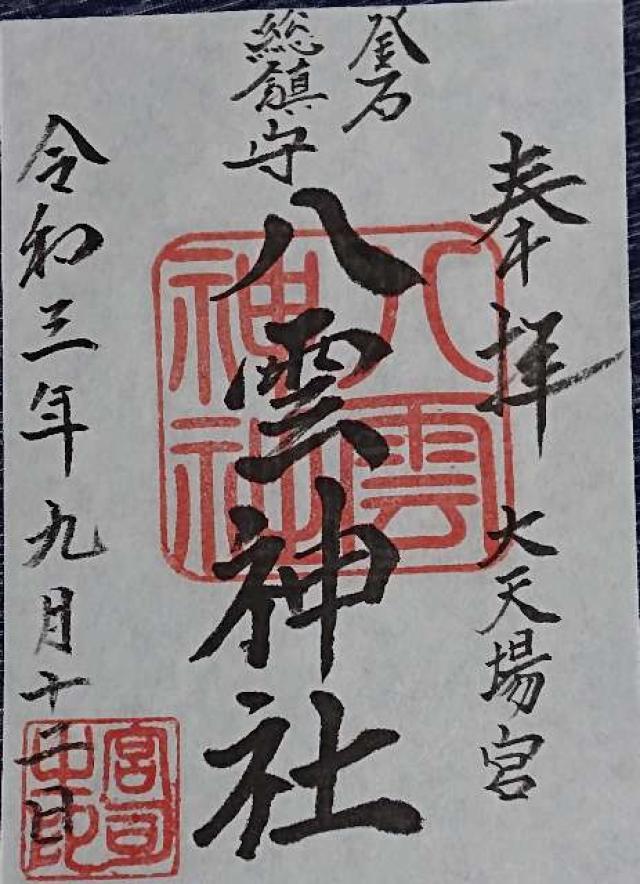 奉拝
大天場宮
釜石
総鎮守
八雲神社
八雲
神社
令和三年九月十二日
宮司
之印